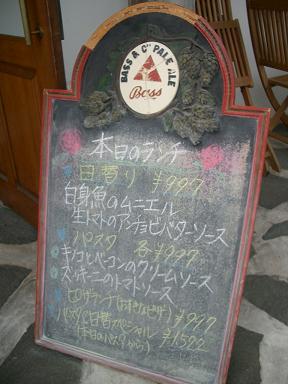 BASS & Co PALE ALE
Bass
本日のランチ
日替り ¥997
白身魚のムニエル
生トマトのアンチョビバターソース
パスタ 各¥997
キノコとベーコンのクリームソース
ズッキーニのトマトソース
ピザランチ(お好きなピザ) ¥997
パスタ&日替スペシャル ¥1,522
(本日のパスタから)